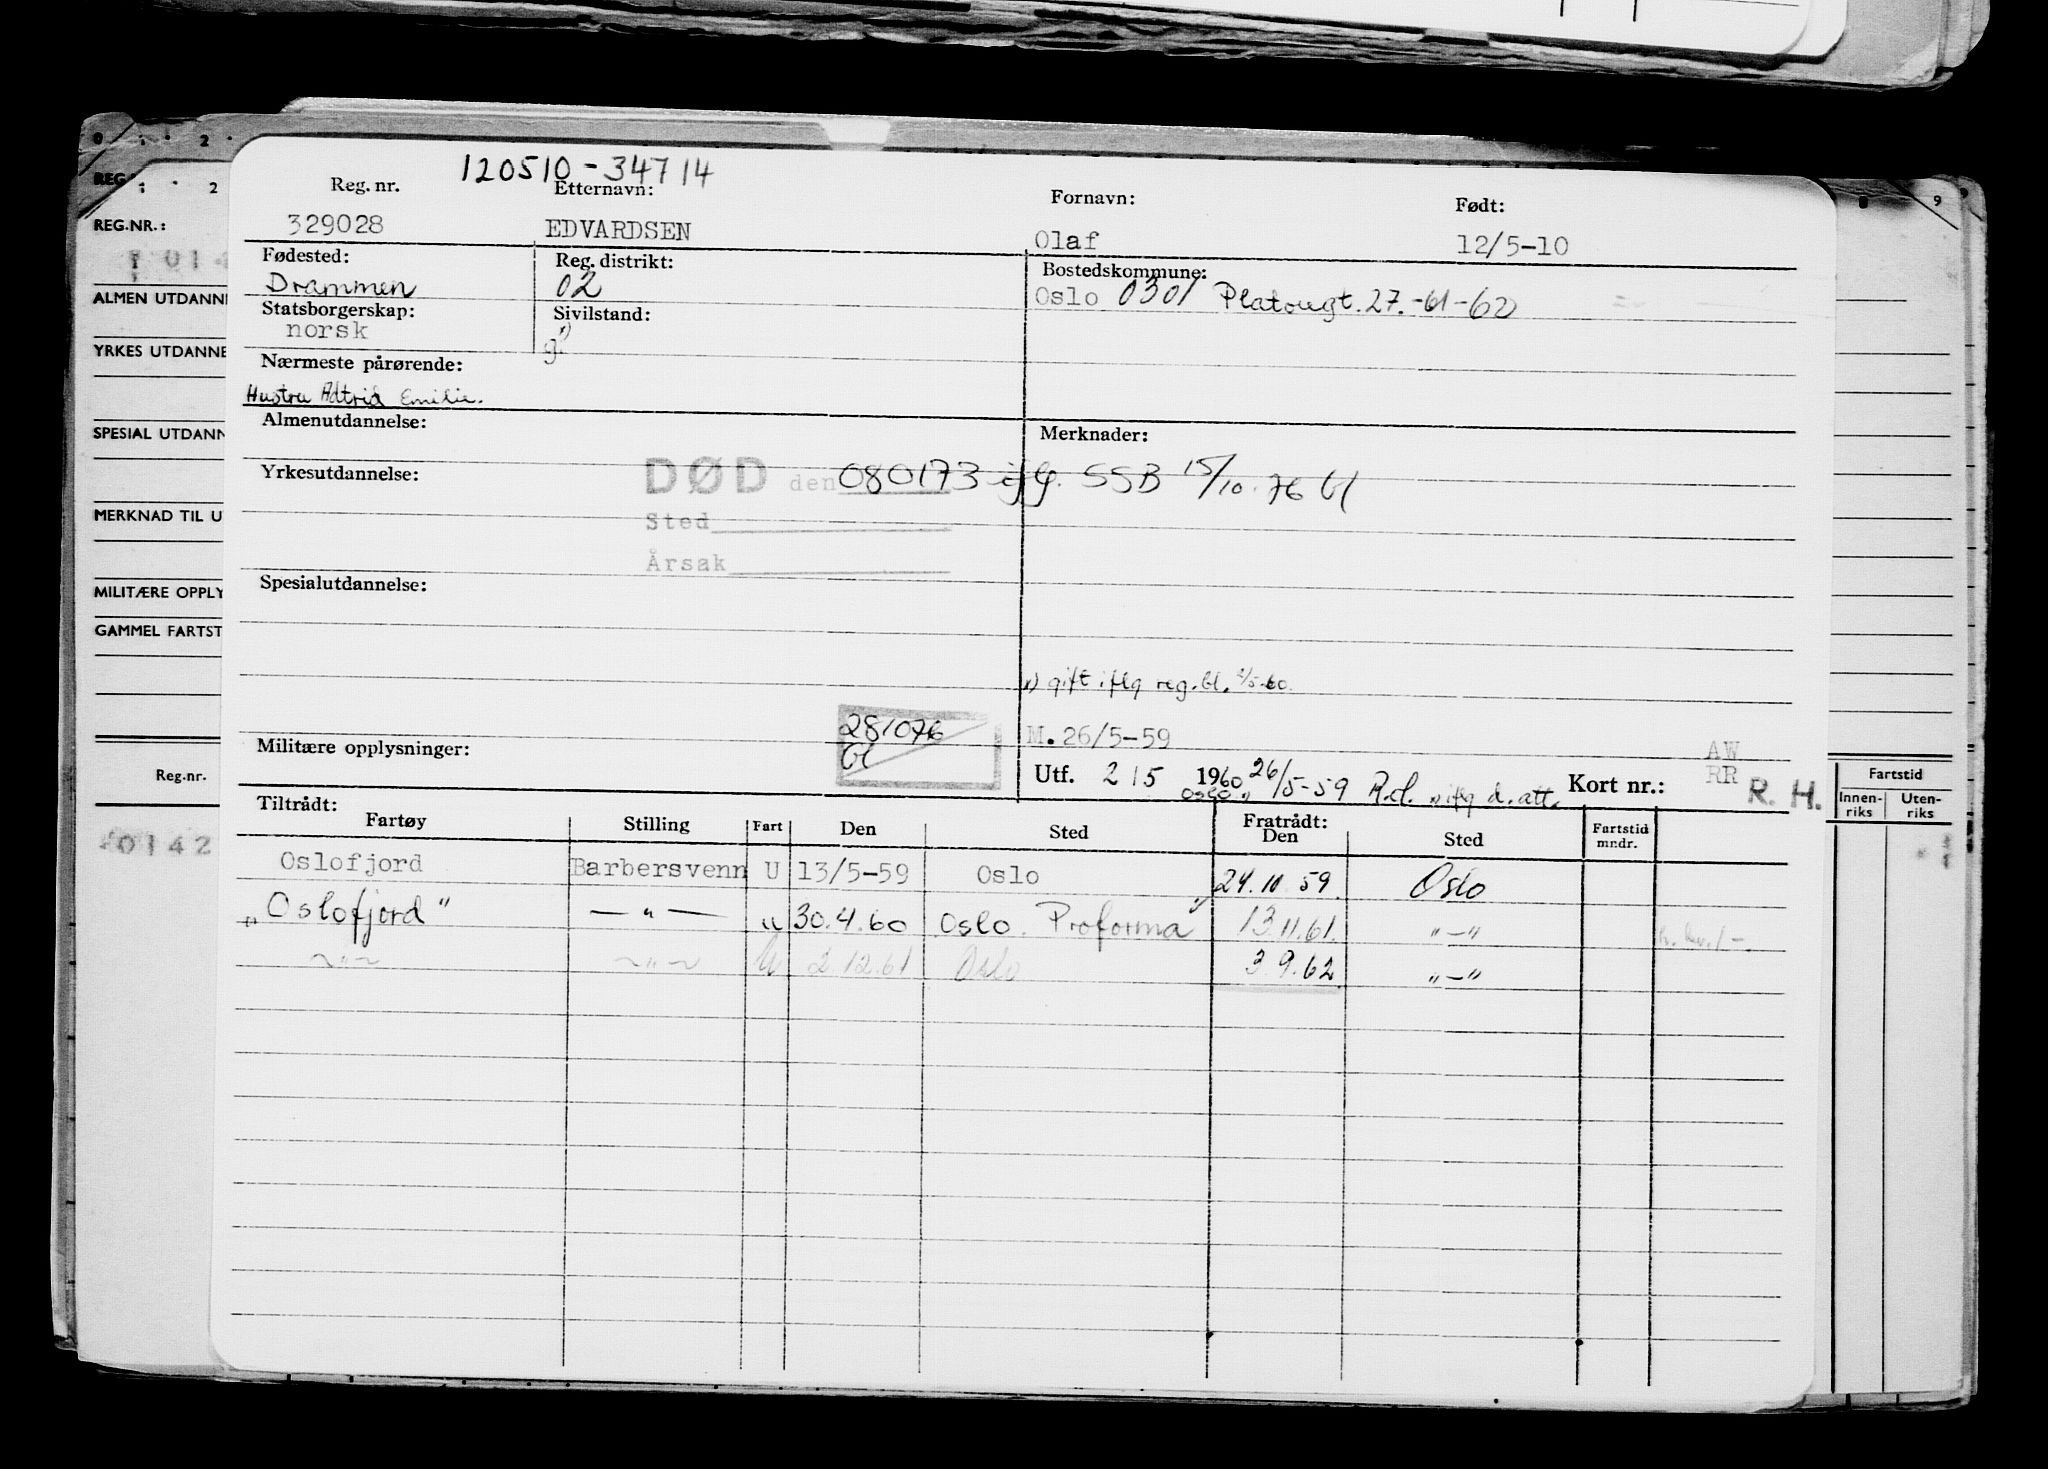 0 2
REG
2
9
120510-34714
Reg. nr. Etternavn: Fornavn: Født:
329028 EDVARDSEN Olaf 12/5-10
Fødested: Reg. distrikt: Bostedskommune:
Drammen 02 Oslo 0301 Platougt. 27.-61-62
Statsborgerskap: Sivilstand:
norsk g.
Nærmeste pårørende:
Hustru Astrid Emilie.
Almenutdannelse: Merknader:
Yrkesutdannelse: DØD den 080173 iflg. SSB 15/10.76 bl
Sted
Årsak
Spesialutdannelse:
gift iflg reg.bl. 2/5-60.
281076
bl
M. 26/5-59
Militære opplysninger: Utf. 2/5 1960 26/5-59 Kort nr.:
Oslo iflg d. att.
AW
RR
R. H.
Tiltrådt: Fratrådt:
Fartøy Stilling Fart Den Sted Den Sted Fartstid mndr.
Oslofjord Barbersvenn U 13/5-59 Oslo 24.10.59. Oslo
"Oslofjord" —"— " 30.4.60 Oslo. Proforma 13.11.61. "—"
~"~ ~"~ U 2.12.61 Oslo 3.9.62 "—"
REG.NR.:
ALMEN UTDANNE
YRKES UTDANNE
SPESIAL UTDANN
MERKNAD TIL U
MILITÆRE OPPLY
GAMMEL FARTST
Reg.nr.
0142
Fartstid
Innen-
riks
Uten-
riks